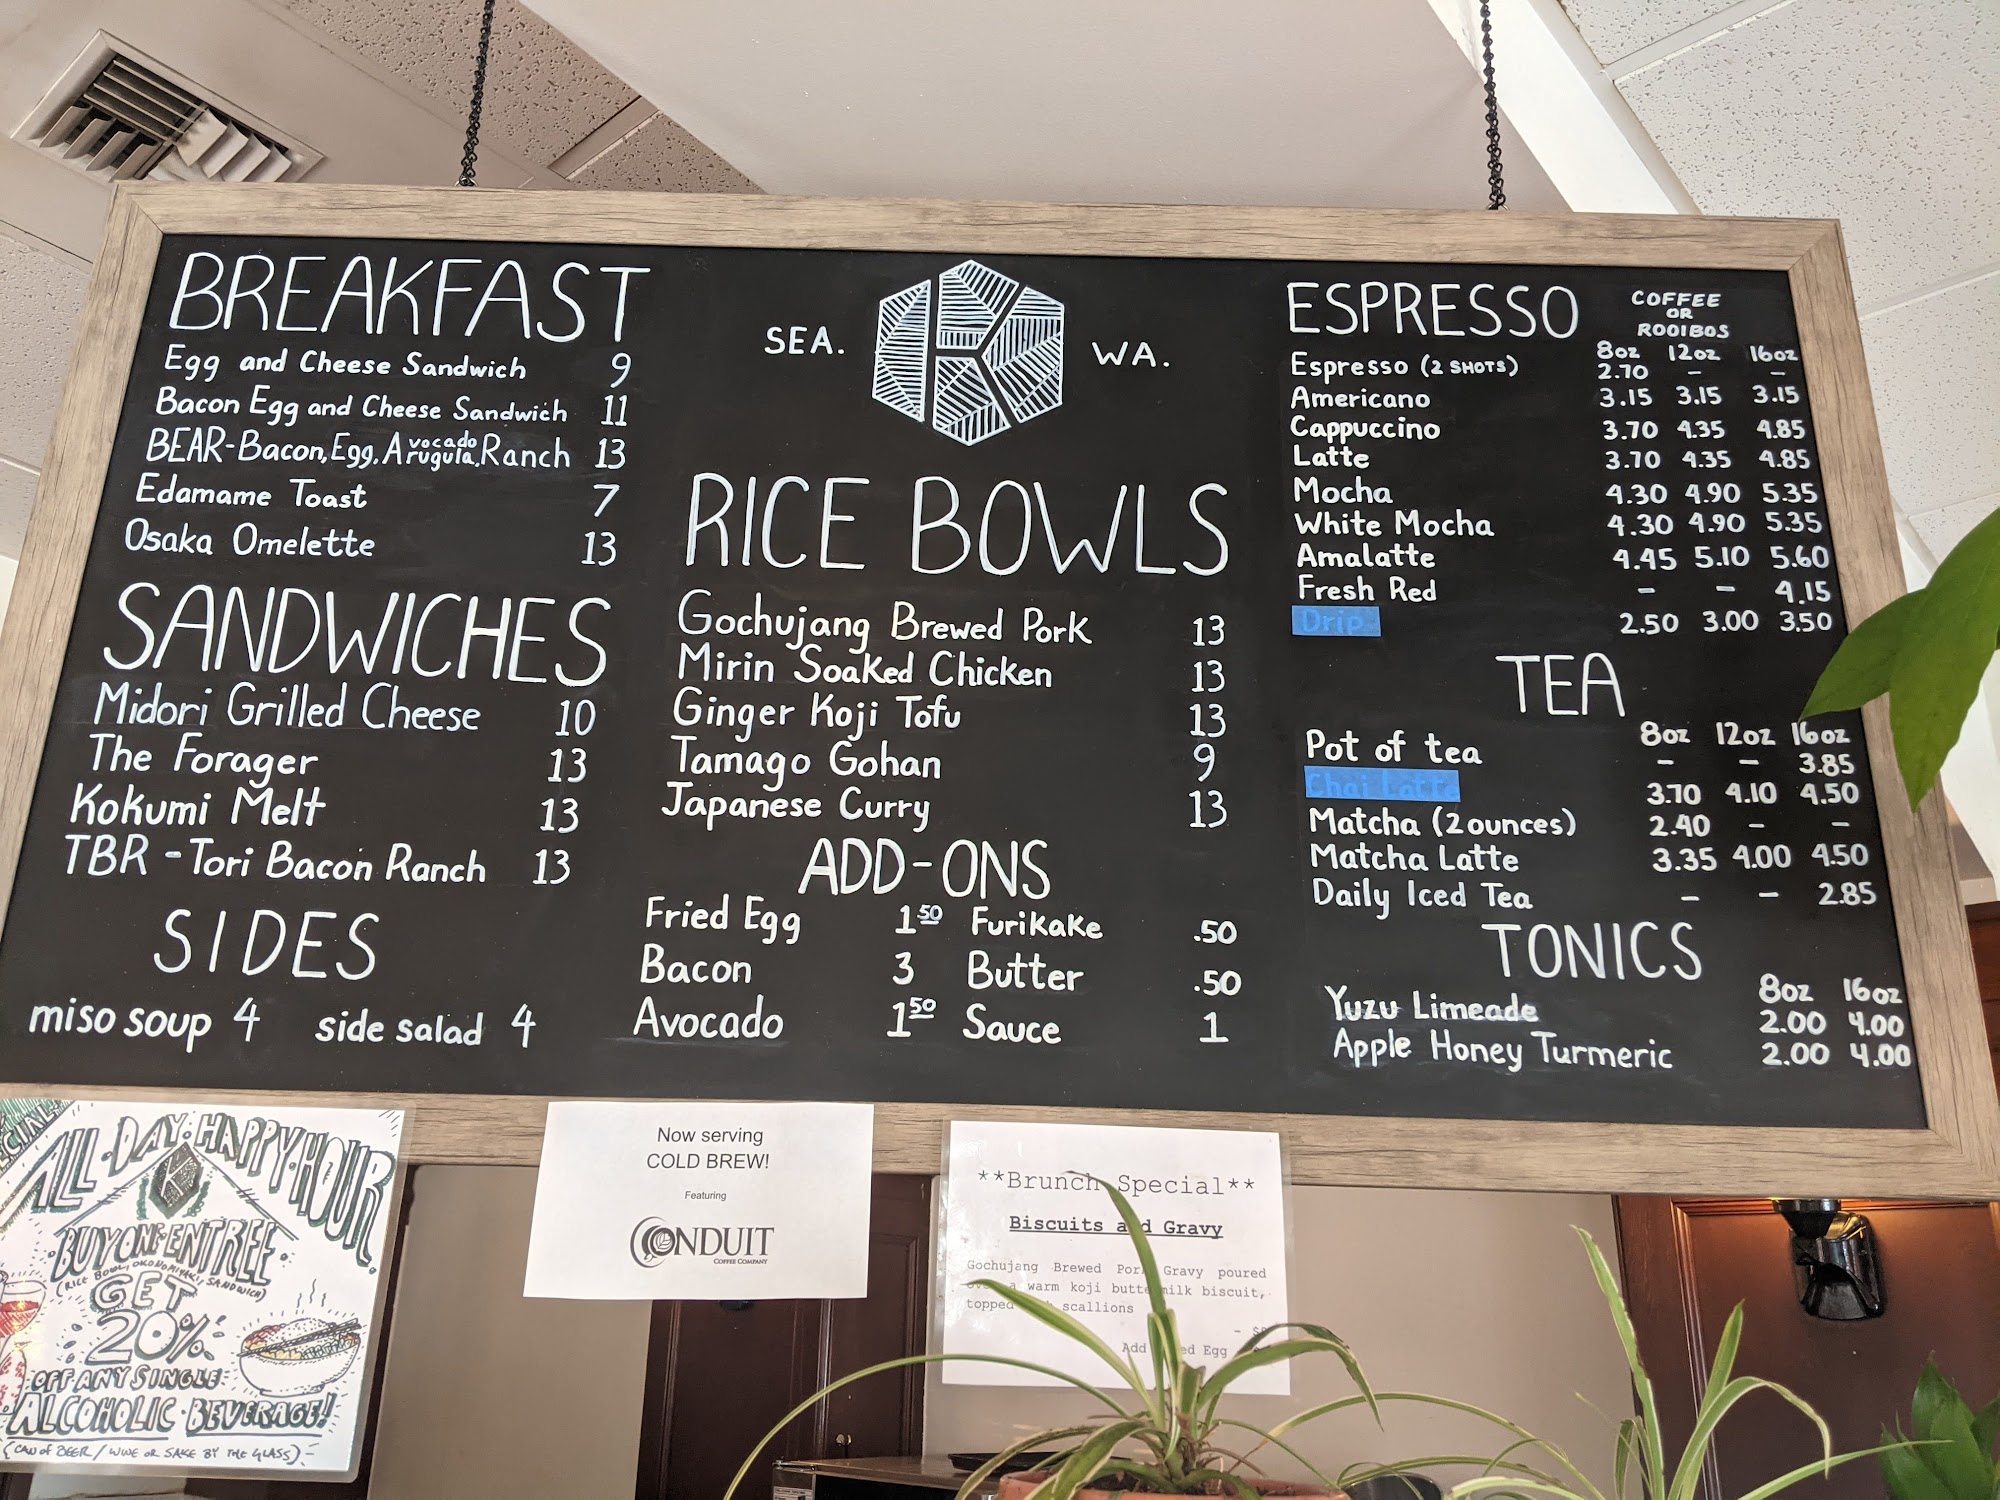 BREAKFAST
Egg and Cheese Sandwich 9
Bacon Egg and Cheese Sandwich 11
BEAR-Bacon, Egg, Avocado Arugula, Ranch 13
Edamame Toast 7
Osaka Omelette 13
SANDWICHES
Midori Grilled Cheese 10
The Forager 13
Kokumi Melt 13
TBR - Tori Bacon Ranch 13
SIDES
miso soup 4 side salad 4
SEA. K WA.
RICE BOWLS
Gochujang Brewed Pork 13
Mirin Soaked Chicken 13
Ginger Koji Tofu 13
Tamago Gohan 9
Japanese Curry 13
ADD-ONS
Fried Egg 1.50 Furikake .50
Bacon 3 Butter .50
Avocado 1.50 Sauce 1
ESPRESSO
COFFEE
OR
ROOIBOS
8oz 12oz 16oz
Espresso (2 SHOTS) 2.70 - -
Americano 3.15 3.15 3.15
Cappuccino 3.70 4.35 4.85
Latte 3.70 4.35 4.85
Mocha 4.30 4.90 5.35
White Mocha 4.30 4.90 5.35
Amalatte 4.45 5.10 5.60
Fresh Red - - 4.15
Drip 2.50 3.00 3.50
TEA
8oz 12oz 16oz
Pot of tea - - 3.85
Chai Latte 3.70 4.10 4.50
Matcha (2 ounces) 2.40 - -
Matcha Latte 3.35 4.00 4.50
Daily Iced Tea - - 2.85
TONICS
8oz 16oz
Yuzu Limeade 2.00 4.00
Apple Honey Turmeric 2.00 4.00
ALL·DAY·HAPPY·HOUR
K
·BUY ONE ENTREE·
(RICE BOWL, OKONOMIYAKI, SANDWICH)
GET
20%
OFF ANY SINGLE
ALCOHOLIC·BEVERAGE!
(CAN of BEER / WINE OR SAKE BY THE GLASS)
Now serving
COLD BREW!
Featuring
CONDUIT
COFFEE COMPANY
**Brunch Special**
Biscuits and Gravy
Gochujang Brewed Pork Gravy poured
a warm koji buttermilk biscuit,
topped scallions
Add Egg